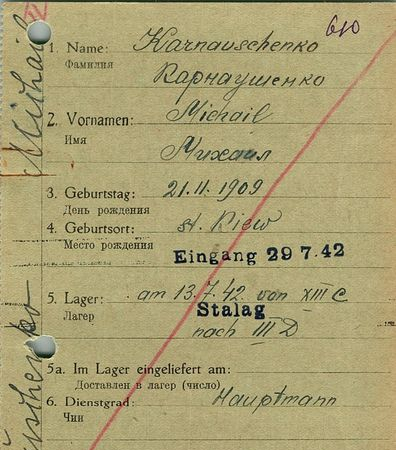 610
1. Name: Karnauschenko
Фамилия Карнаушенко
2. Vornamen: Michail
Имя
Михаил
3. Geburtstag: 21.11.1909
День рождения
4. Geburtsort: st. Kiew
Место рождения
Eingang 29 7.42
5. Lager: am 13.7.42 von XIII C
Лагер Stalag
nach III D
5a. Im Lager eingeliefert am:
Доставлен в лагер (число)
6. Dienstgrad: Hauptmann
Чин
Michail